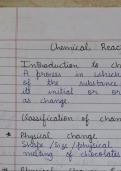 Chemical Reac
Introduction to ch
A process in which
of the substance
its initial or or
as change.
Classification of chan
* Physical change
Shape / Size / physical
melting of chocolates